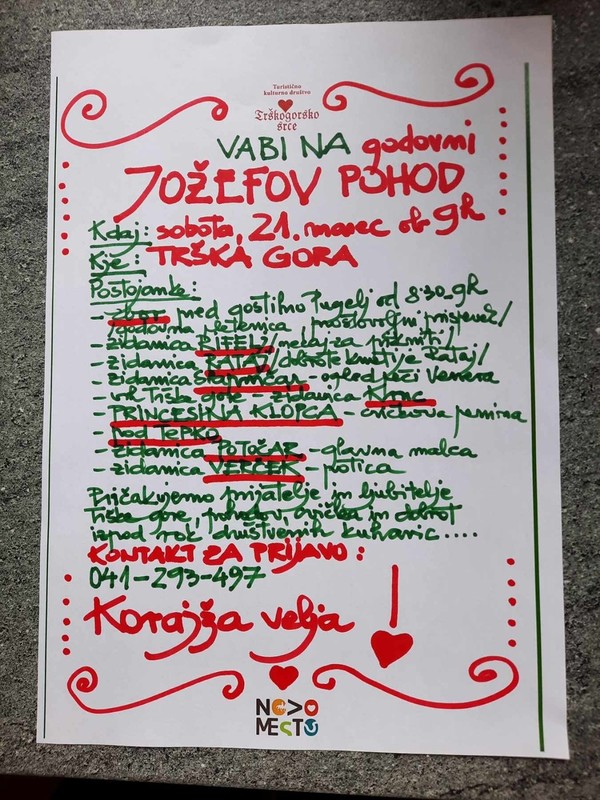 Turistično
kulturno društvo
Trškogorsko
srce
VABI NA godovni
JOŽEFOV POHOD
Kdaj: sobota, 21. marec ob 9h
Kje: TRŠKA GORA
Postojanke:
- zbor pred gostilno Pugelj od 8:30-9h
/godovna pletenica, prostovoljni prispevek/
- zidanica RIFELJ /nekaj za prikmiti/
- zidanica RATAJ /dobrote kmetije Rataj/
- zidanica - ogled
- vrh Trške gore - zidanica Klanc
- PRINCESINA KLOPCA - cvičkova penina
- pod TEPKO
- zidanica POTOČAR - glavna malca
- zidanica VERČEK - potica
Pričakujemo prijatelje in ljubitelje
Trške gore, pohodov, cvička in dobrot
izpod rok društvenih kuharic ....
KONTAKT ZA PRIJAVO:
041-293-497
Korajža velja
NOVO
MESTO